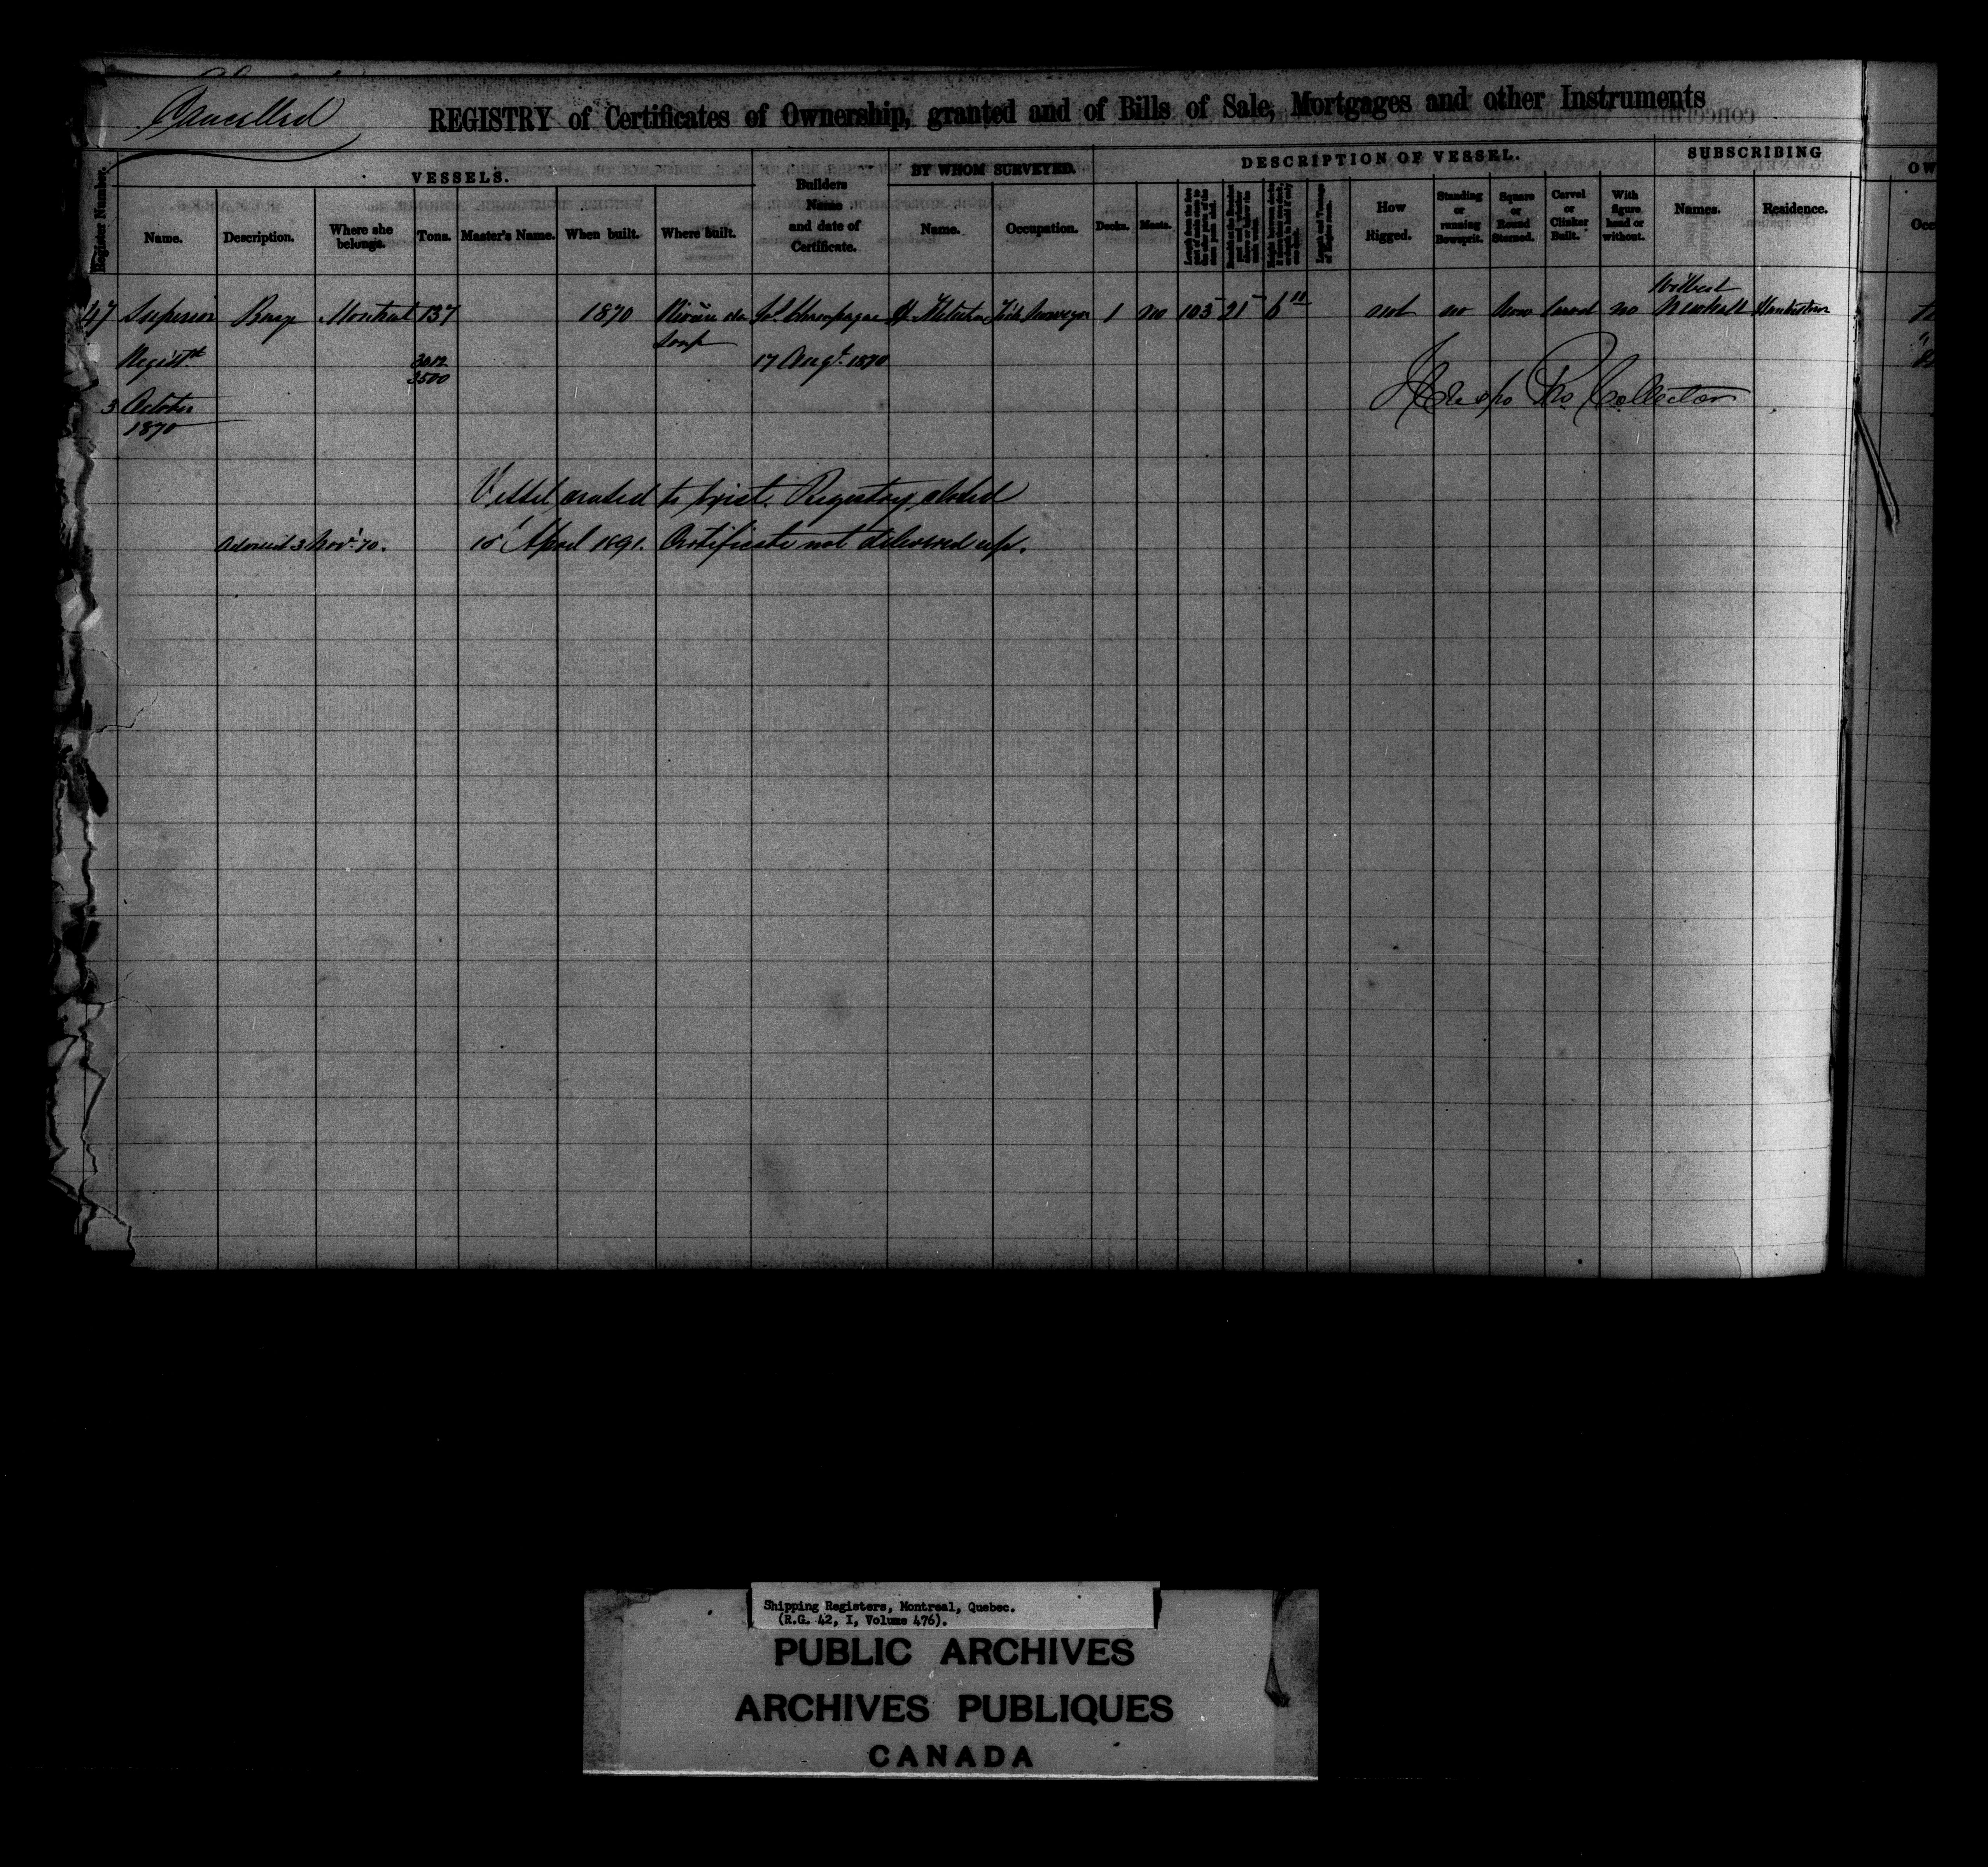 Cancelled
REGISTRY of Certificates of Ownership, granted and of Bills of Sale, Mortgages and other Instruments
Register Number.
VESSELS.
Name.
Description.
Where she belongs.
Tons.
Master's Name.
When built.
Where built.
Builders Name and date of Certificate.
BY WHOM SURVEYED.
Name.
Occupation.
DESCRIPTION OF VESSEL.
Decks.
Masts.
How Rigged.
Standing or running Bowsprit.
Square or Round Sterned.
Carvel or Clinker Built.
With figure head or without.
SUBSCRIBING
Names.
Residence.
OW
Occ
Wilbert
47 Superior Barge Montreal 137 1870 Rivière du Js. Champagne 1 no 103 21 6 not no carvel no
Loup
Registd. 3012 17 Augt. 1870
3500
3 October
1870
Pro Collector
Vessel ceased to exist. Registry closed
Advised 3 Novr. 70. 15 April 1891. Certificate not delivered up.
Shipping Registers, Montreal, Quebec.
(R.G. 42, I, Volume 476).
PUBLIC ARCHIVES
ARCHIVES PUBLIQUES
CANADA